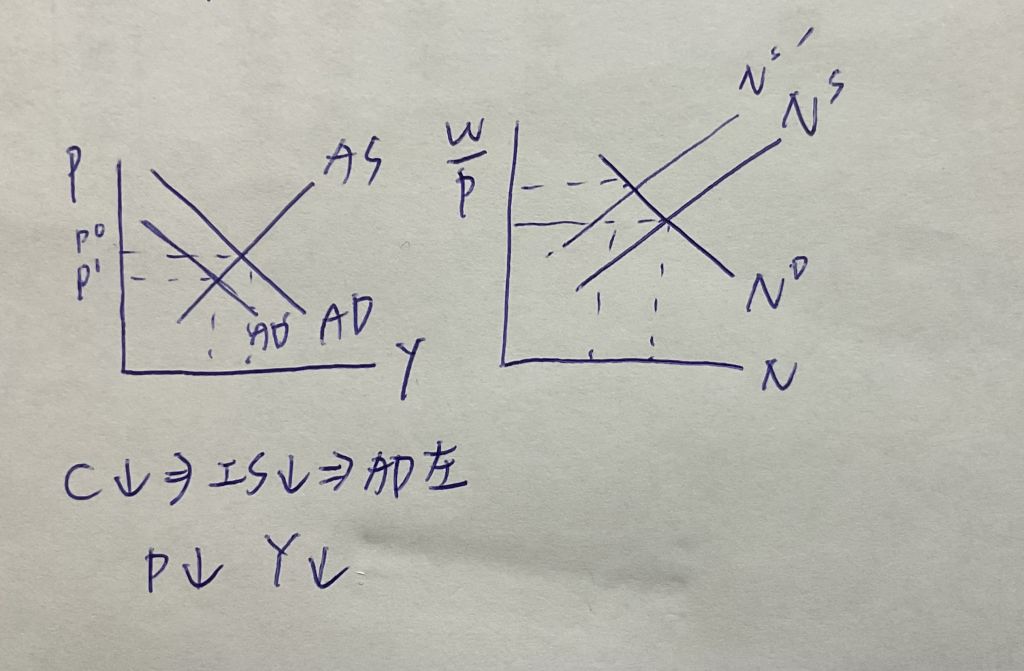 P
AS
P⁰
P¹
AD'
AD
Y
W/P
Nˢ′
Nˢ
Nᴰ
N
C↓⇒IS↓⇒AD左
P↓ Y↓